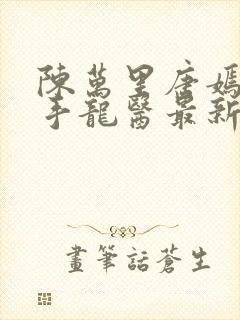 陳萬里唐嫣
手龍醫最新
畫筆話蒼生